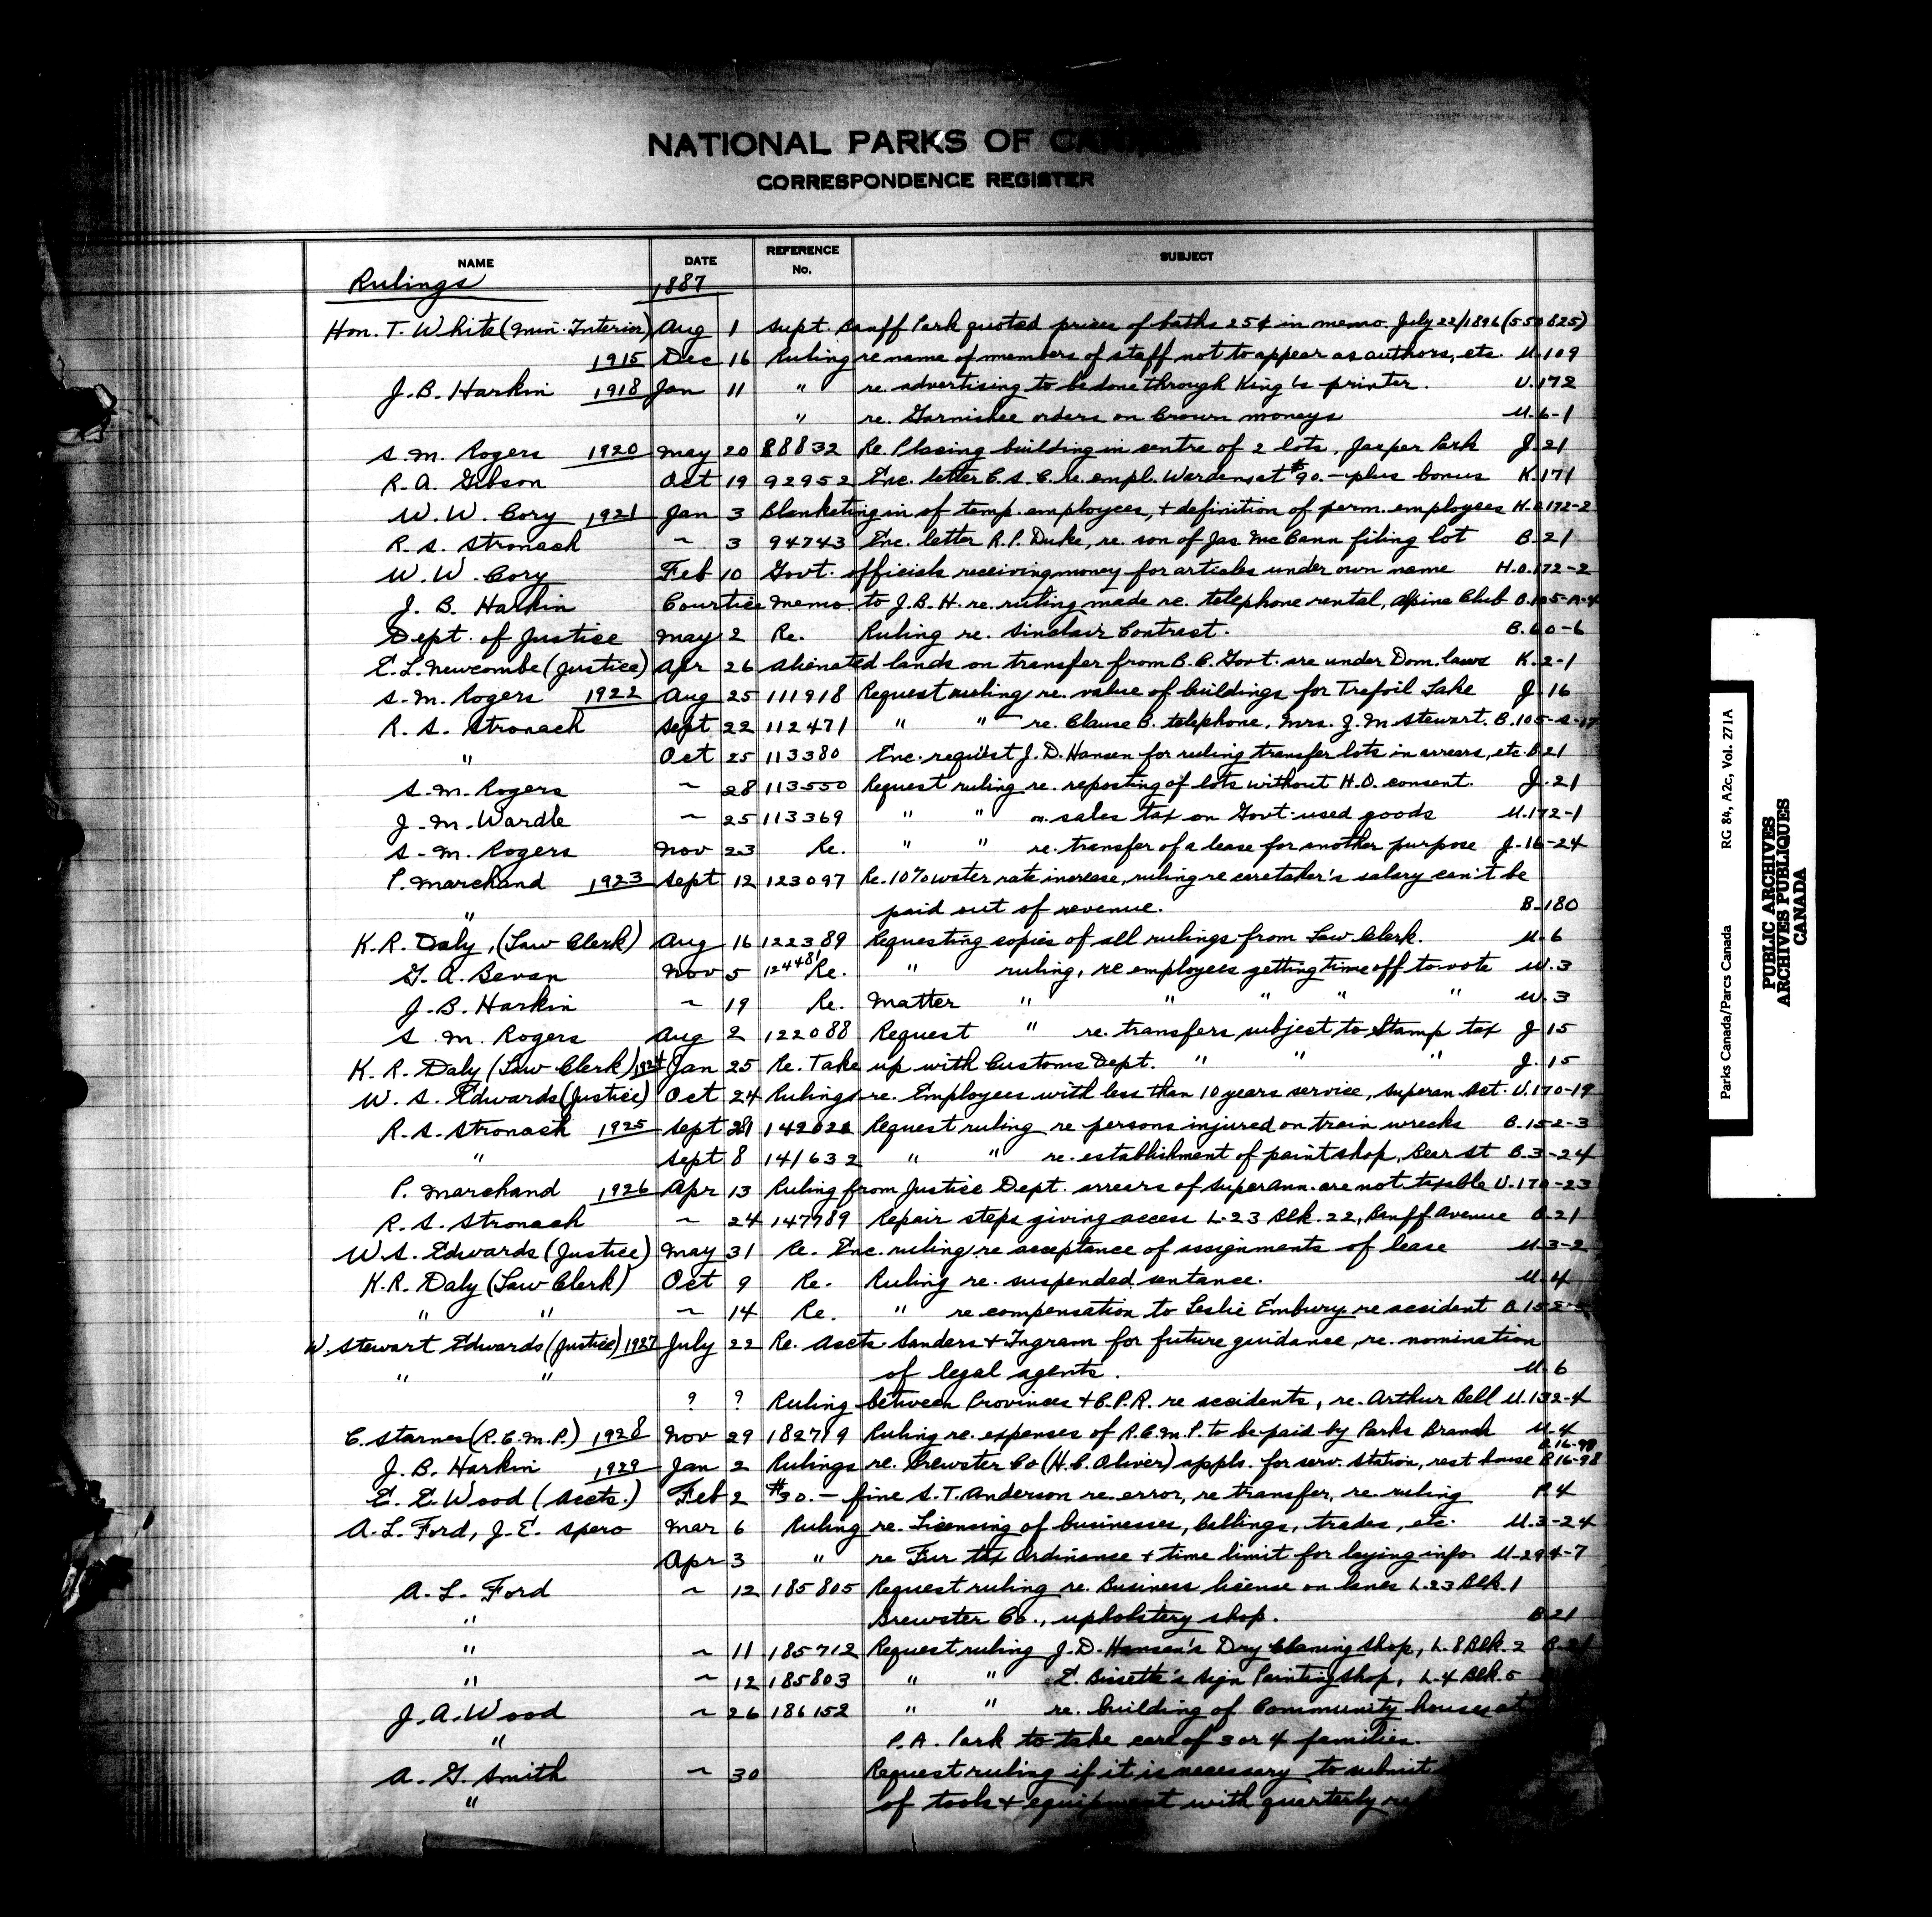 NATIONAL PARKS OF CANADA
CORRESPONDENCE REGISTER
NAME DATE REFERENCE No. SUBJECT
Rulings 1887
Hon. T. White (Min. Interior) Aug 1 Supt. Banff Park quoted prices of baths 25¢ in memo. July 22/1896 (550825)
1915 Dec 16 Ruling re name of members of staff not to appear as authors, etc. U.109
J. B. Harkin 1918 Jan 11 " re. advertising to be done through King's printer. U.172
" re. Garnishee orders on Crown moneys U.6-1
S. M. Rogers 1920 May 20 88832 Re. Placing building in centre of 2 lots, Jasper Park J.21
R. A. Gibson Oct 19 92952 Enc. letter C.S.C. re. empl. Wardens at $90.— plus bonus K.171
W. W. Cory 1921 Jan 3 Blanketing in of temp. employees, + definition of perm. employees H.O.172-2
R. S. Stronach ~ 3 94743 Enc. letter R.P. Duke, re. son of Jas. McCann filing lot B.21
W. W. Cory Feb 10 Govt. officials receiving money for articles under own name H.O.172-2
J. B. Harkin Courtice memo. to J.B.H. re. ruling made re. telephone rental, Alpine Club B.105-A-4
Dept. of Justice May 2 Re. Ruling re. Sinclair Contract. B.60-6
E. L. Newcombe (Justice) Apr 26 Alienated lands on transfer from B.C. Govt. are under Dom. laws K.2-1
S. M. Rogers 1922 Aug 25 111918 Request ruling re. value of buildings for Trefoil Lake J.16
R. S. Stronach Sept 22 112471 " " re. Clause B. telephone, Mrs. J. M. Stewart. B.105-S-17
" Oct 25 113380 Enc. request J. D. Hansen for ruling transfer lots in arrears, etc. B.21
S. M. Rogers ~ 28 113550 Request ruling re. reposting of lots without H.O. consent. J.21
J. M. Wardle ~ 25 113369 " " on sales tax on Govt. used goods U.172-1
S. M. Rogers Nov 23 Re. " " re. transfer of a lease for another purpose J.16-24
P. Marchand 1923 Sept 12 123097 Re. 10% water rate increase, ruling re caretaker's salary can't be
" paid out of revenue. B.180
K. R. Daly, (Law Clerk) Aug 16 122389 Requesting copies of all rulings from Law Clerk. U.6
G. A. Bevan Nov 5 124481 Re. " ruling, re employees getting time off to vote W.3
J. B. Harkin ~ 19 Re. Matter " " " " " W.3
S. M. Rogers Aug 2 122088 Request " re. transfers subject to Stamp tax J.15
K. R. Daly (Law Clerk) 1924 Jan 25 Re. Take up with Customs Dept. " " " J.15
W. S. Edwards (Justice) Oct 24 Rulings re. Employees with less than 10 years service, Superan. Act. U.170-19
R. S. Stronach 1925 Sept 21 Request ruling re persons injured on train wrecks B.152-3
" Sept 8 141632 " " re. establishment of paint shop, Bear St B.3-24
P. Marchand 1926 Apr 13 Ruling from Justice Dept. arrears of Superann. are not taxable U.170-23
R. S. Stronach ~ 24 147789 Repair steps giving access L.23 Blk. 22, Banff Avenue B.21
W. S. Edwards (Justice) May 31 Re. Enc. ruling re acceptance of assignments of lease U.3-2
K. R. Daly (Law Clerk) Oct 9 Re. Ruling re. suspended sentance. U.4
" " ~ 14 Re. " re compensation to Leslie Embury re accident
W. Stewart Edwards (Justice) 1927 July 22 Re. Accts. Sanders + Ingram for future guidance, re. nomination
" " of legal agents. U.6
? ? Ruling between Provinces + C.P.R. re accidents, re. Arthur Bell U.132-4
C. Starnes (R.C.M.P.) 1928 Nov 29 182719 Ruling re. expenses of R.C.M.P. to be paid by Parks Branch U.4
J. B. Harkin 1929 Jan 2 Rulings re. Brewster Co (H.C. Oliver) appls. for serv. station, rest house B.16-98
E. E. Wood (Accts.) Feb 2 $30.— fine S. T. Anderson re. error, re transfer, re. ruling P.4
A. L. Ford, J. E. Spero Mar 6 Ruling re. Licensing of businesses, Callings, trades, etc. U.3-24
Apr 3 " re Fur tax Ordinance + time limit for laying info. U.294-7
A. L. Ford ~ 12 185805 Request ruling re. Business license on lanes L.23 Blk. 1
" Brewster Co., upholstery shop. B.21
" ~ 11 185712 Request ruling J. D. Hansen's Dry Cleaning Shop, L.8 Blk. 2 B.21
" ~ 12 185803 " " E. Bissette's Sign Painting Shop, L.4 Blk. 5
J. A. Wood ~ 26 186152 " " re. building of Community houses at
" P.A. Park to take care of 3 or 4 families.
A. G. Smith ~ 30 Request ruling if it is necessary to submit
" of tools + equipment with quarterly
Parks Canada/Parcs Canada RG 84, A2c, Vol. 271A
PUBLIC ARCHIVES
ARCHIVES PUBLIQUES
CANADA